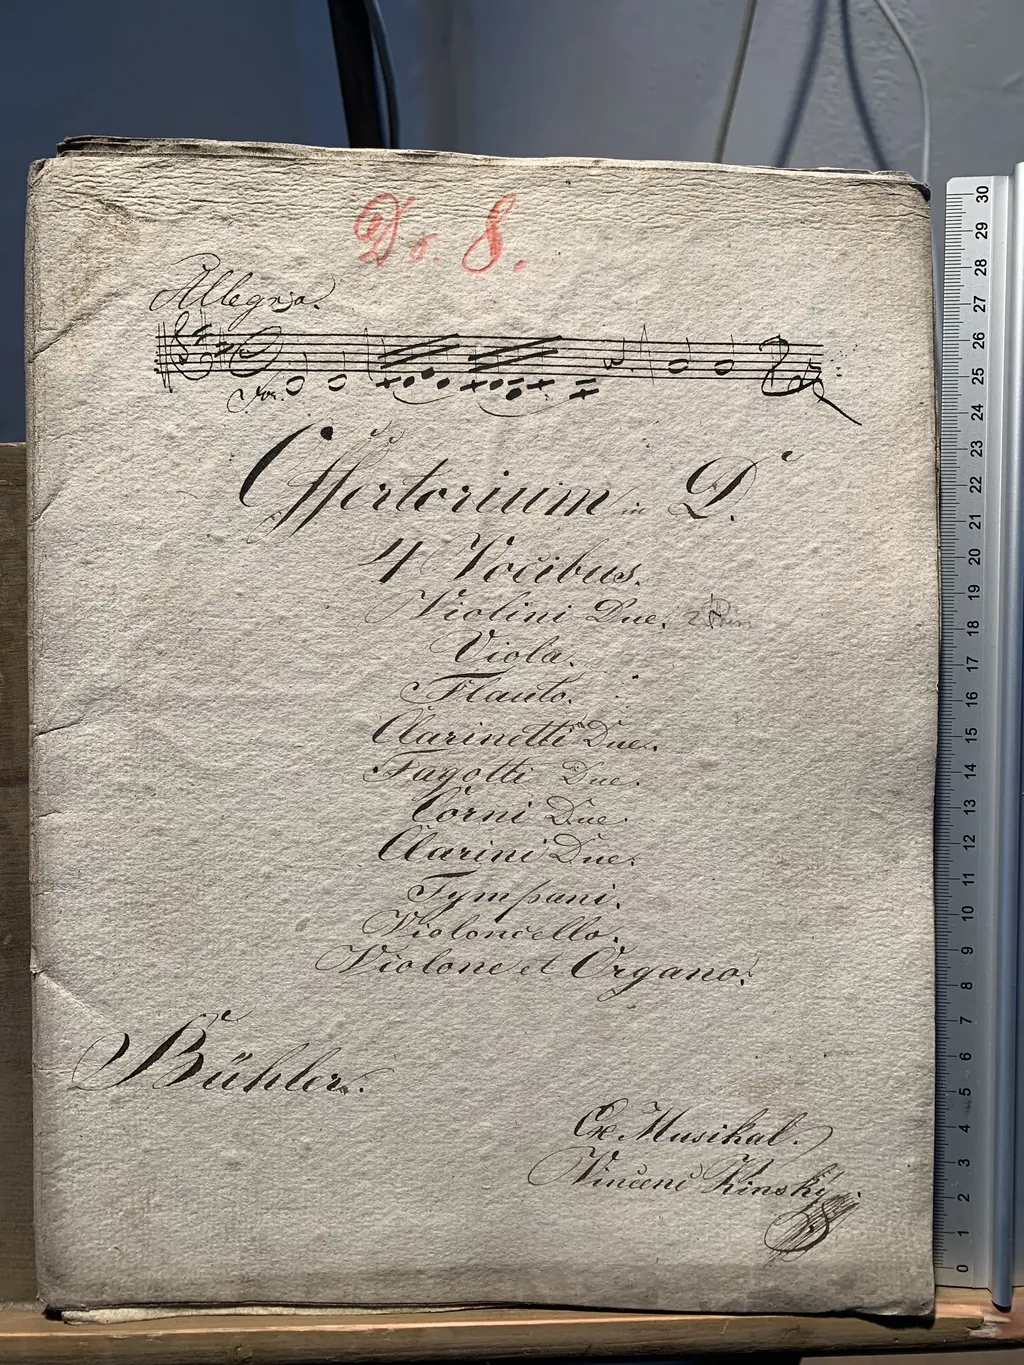 No. 8.
Allegro.
For.
Offertorium in D.
4 Vocibus.
Violini Due.
Viola.
Flauto.
Clarinetti Due.
Fagotti Due.
Corni Due.
Clarini Due.
Tympani.
Violoncello.
Violone et Organo.
Bühler.
Ex Musikal.
Vincenc Kinský
30
29
28
27
26
25
24
23
22
21
20
19
18
17
16
15
14
13
12
11
10
9
8
7
6
5
4
3
2
1
0